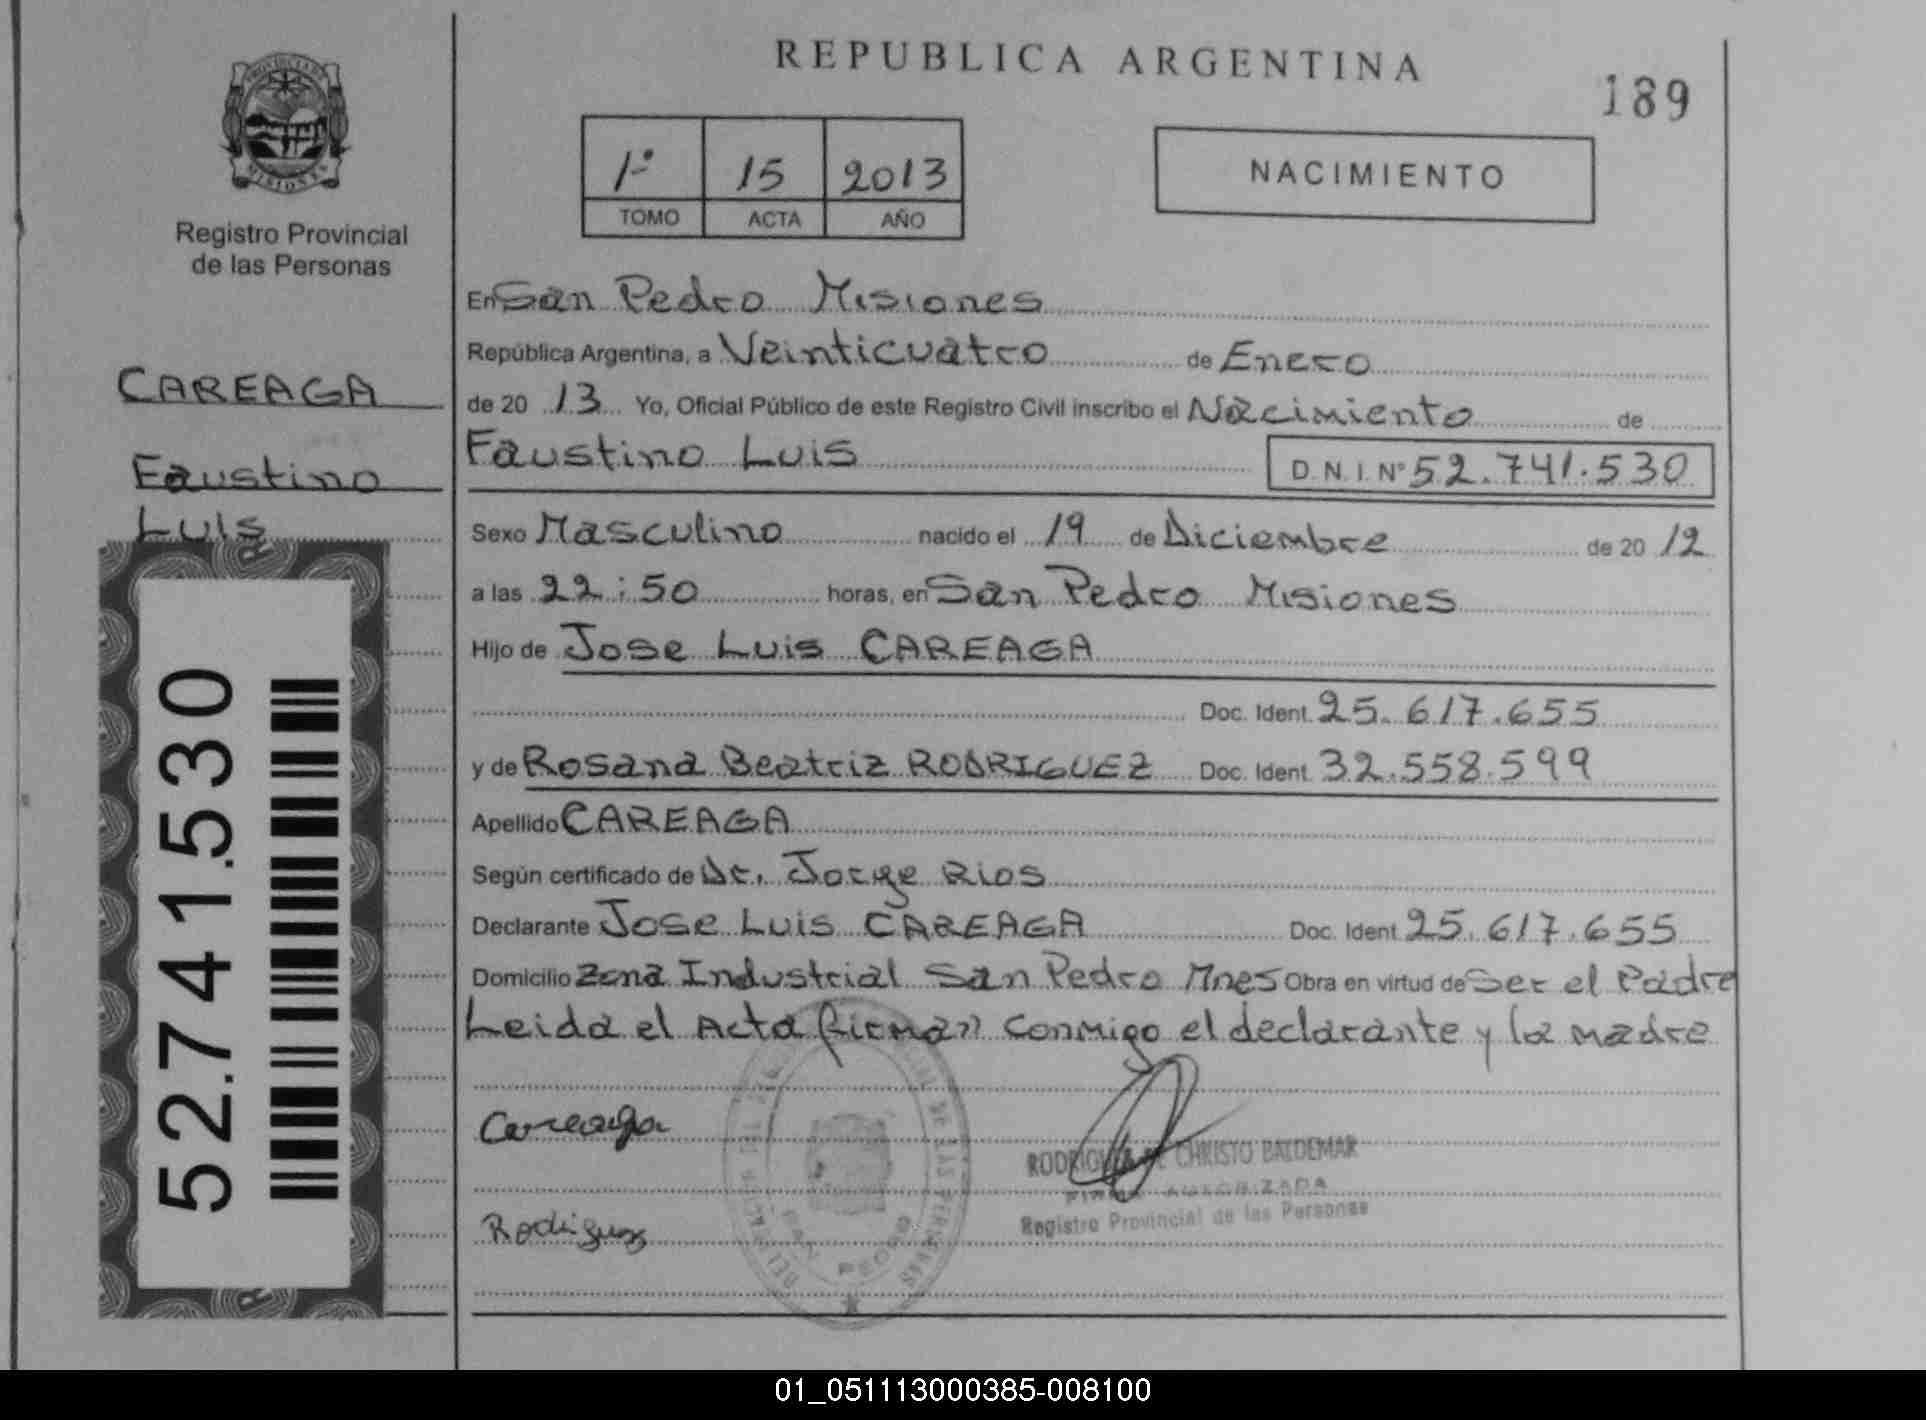 REPUBLICA ARGENTINA
189
PROVINCIA DE
MISIONES
Registro Provincial
de las Personas
1º 15 2013
TOMO ACTA AÑO
NACIMIENTO
CAREAGA
Faustino
Luis
52.741.530
En San Pedro Misiones
República Argentina, a Veinticuatro de Enero
de 20 13 Yo, Oficial Público de este Registro Civil inscribo el Nacimiento de
Faustino Luis D.N.I. Nº 52.741.530
Sexo Masculino nacido el 19 de Diciembre de 20 12
a las 22:50 horas, en San Pedro Misiones
Hijo de Jose Luis CAREAGA
Doc. Ident. 25.617.655
y de Rosana Beatriz RODRIGUEZ Doc. Ident. 32.558.599
Apellido CAREAGA
Según certificado de Dr. Jorge Rios
Declarante Jose Luis CAREAGA Doc. Ident. 25.617.655
Domicilio Zona Industrial San Pedro Mnes Obra en virtud de Ser el Padre
Leida el Acta firman conmigo el declarante y la madre
Careaga
RODRIGUEZ DE CHRISTO BALDEMAR
FIRMA AUTORIZADA
Registro Provincial de las Personas
Rodriguez
01_051113000385-008100